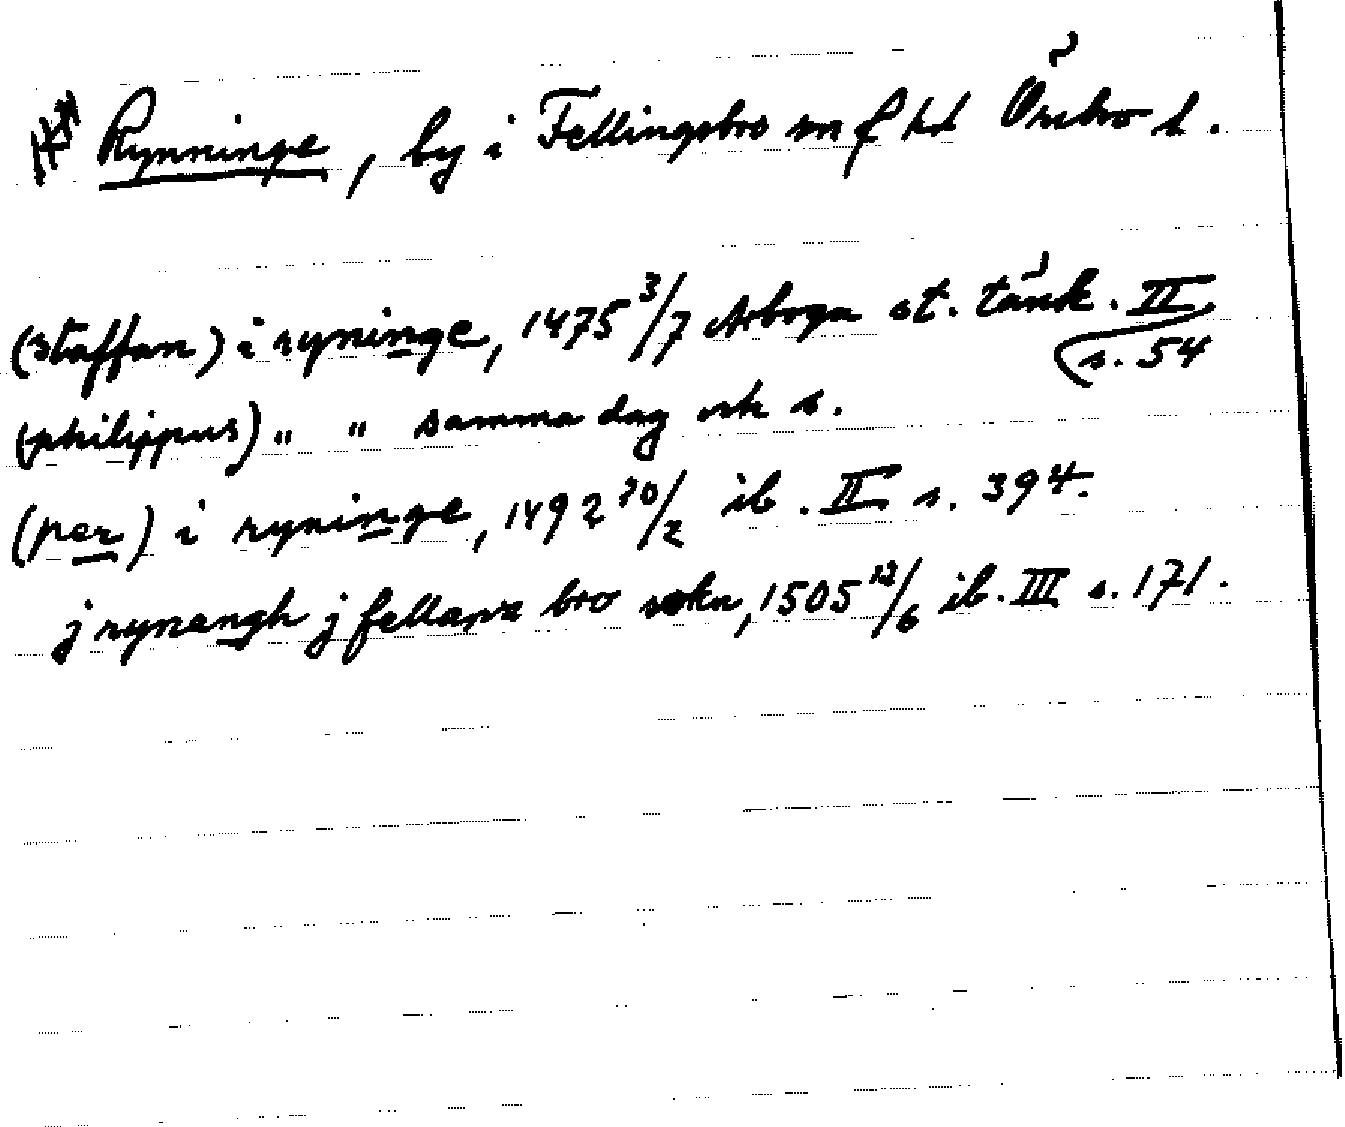 Rynninge, by i Fellingsbro sn o hd Örebro l.
(staffan) i ryninge, 1475 3/7 Arboga st. tänk. II
s. 54
(philippus) " " samma dag och s.
(per) i ryninge, 1492 20/2 ib. II s. 394.
j rynængh j fellans bro sokn, 1505 12/6 ib. III s. 171.